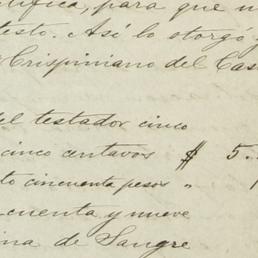 tifica, para que
testo. Así lo otorgó y
Crispiniano del Cas
el testador cinco
cinco centavos $ 5.
to cincuenta pesos " 1
cuenta y nueve
ina de Sangre